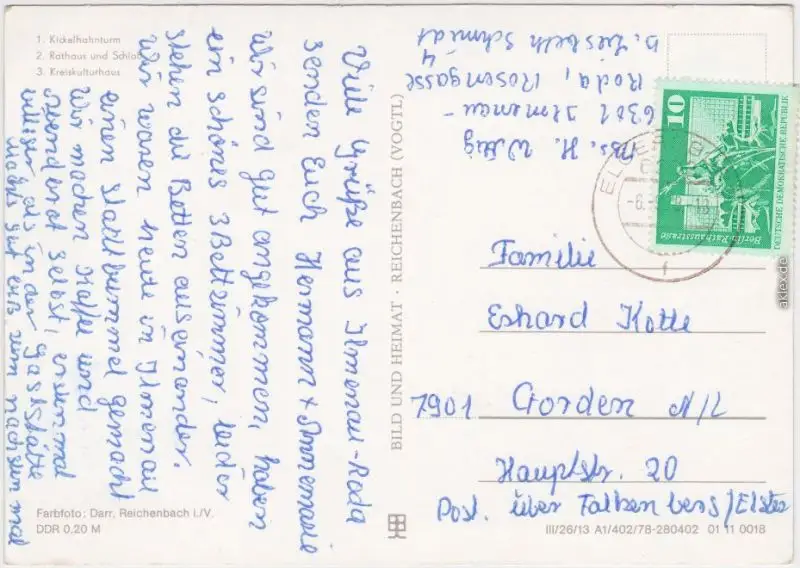 1. Kickelhahnturm
2. Rathaus und Schloß
3. Kreiskulturhaus
Viele Grüße aus Ilmenau-Roda
senden Euch Hermann + Annemarie
Wir sind gut angekommen, haben
ein schönes 3Bettzimmer, leider
stehen die Betten auseinander.
Wir waren heute in Ilmenau
einen Stadtbummel gemacht
Wir machen Kaffe und
Abendbrot selbst, erstenmal
billiger als in der Gaststätte
Machts gut bis zum nächsten mal
Farbfoto: Darr, Reichenbach i. V.
DDR 0,20 M
BILD UND HEIMAT · REICHENBACH (VOGTL)
Abs. H.
6301 Ilmenau-
Roda, Rosengasse
4
b. Liesbeth Schmidt
10
DEUTSCHE DEMOKRATISCHE REPUBLIK
Berlin, Rathausstrasse
Familie
Erhard Kotte
7901 Gorden N/L
Hauptstr. 20
Post. über Falkenberg/Elster
III/26/13 A1/402/78-280402 01 11 0018
akleX.de